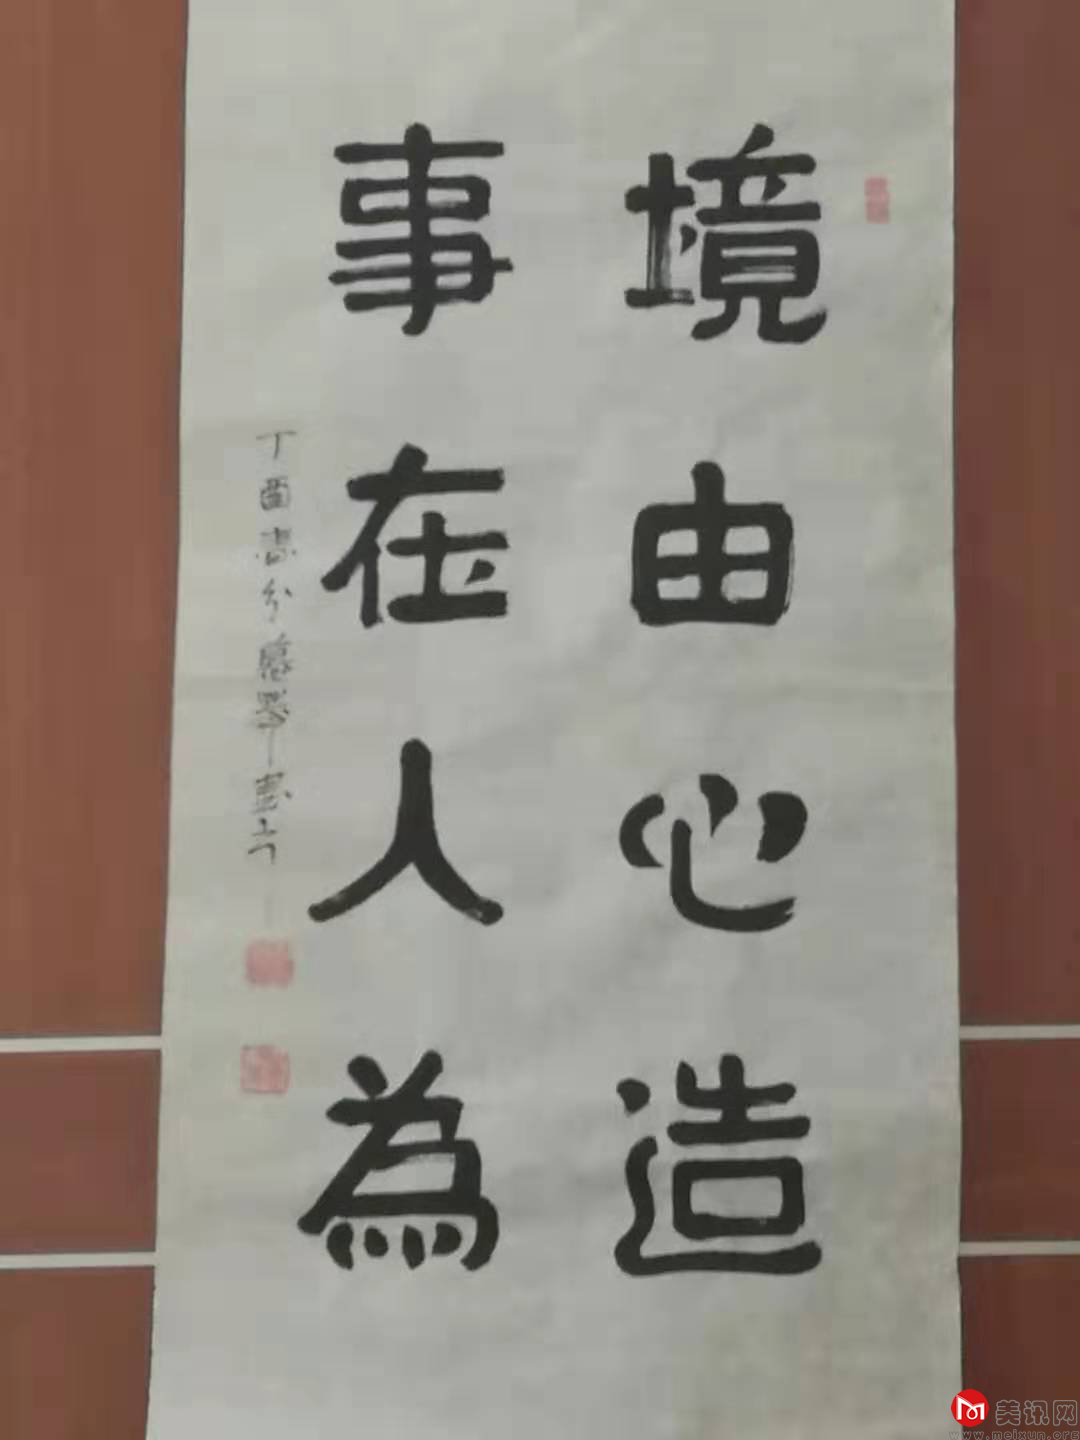 境由心造
事在人為
丁酉春分
美讯网
www.meixun.org